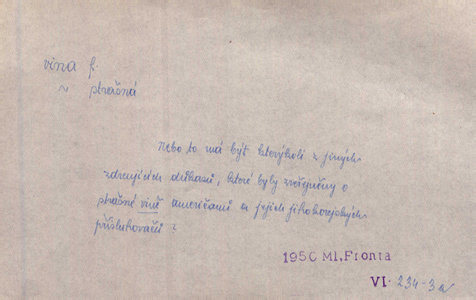 vina f.
~ strašná
Nebo to má být kterýkoli z jiných
zdrcujících důkazů, které byly zveřejněny o
strašné vině američanů a jejich jihokorejských
přisluhovačů?
1950 Ml. Fronta
VI. 234-3a